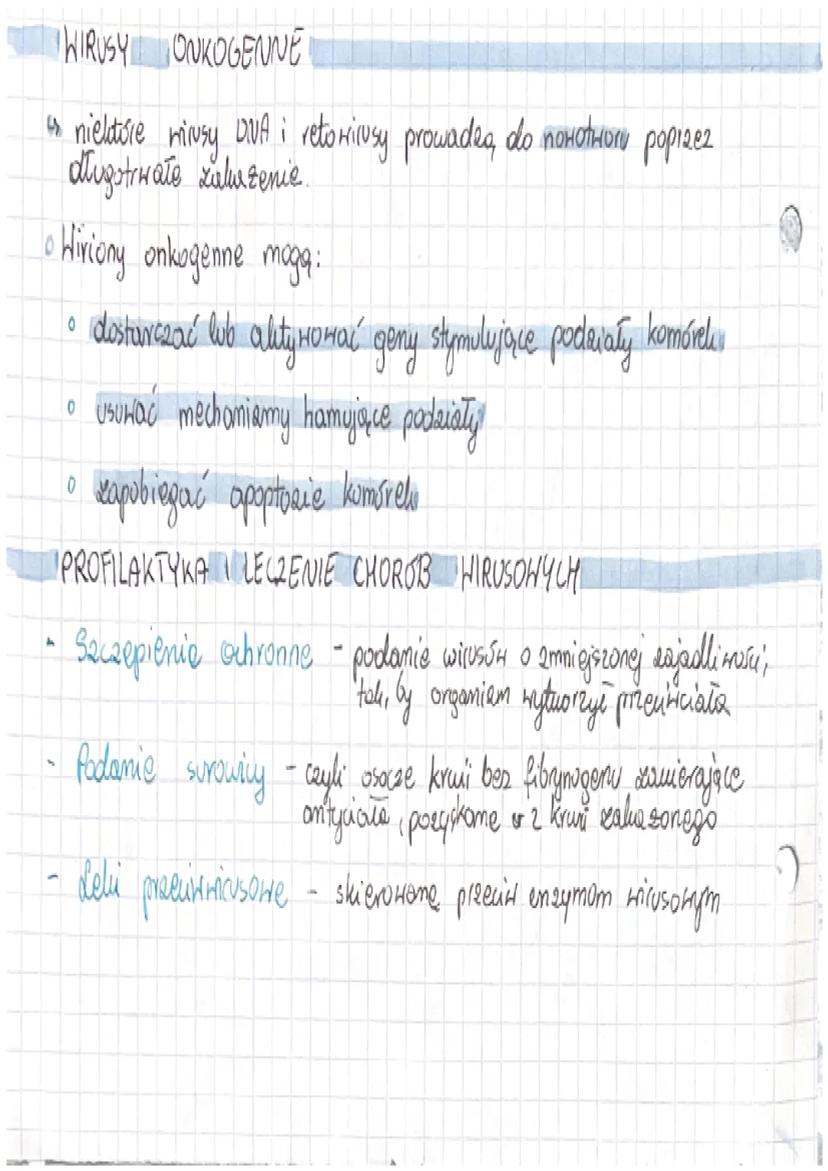 WIRUSY ONKOGENNE
niektóre wirusy DNA i retowirusy prowadzą do nowotworu poprzez
długotrwałe zakażenie.
Wiriony onkogenne mogą:
dostarczać lub aktywować geny stymulujące podziały komórek
usuwać mechanizmy hamujące podziały
zapobiegać apoptozie komórek
PROFILAKTYKA I LECZENIE CHORÓB WIRUSOWYCH
- Szczepienie ochronne - podanie wirusów o zmniejszonej zajadliwości,
tak, by organizm wytworzył przeciwciała
- Podanie surowicy - czyli osocze krwi bez fibrynogenu zawierające
antyciała, pozyskane z krwi zakażonego
- Leki przeciwwirusowe - skierowane przeciw enzymom wirusowym